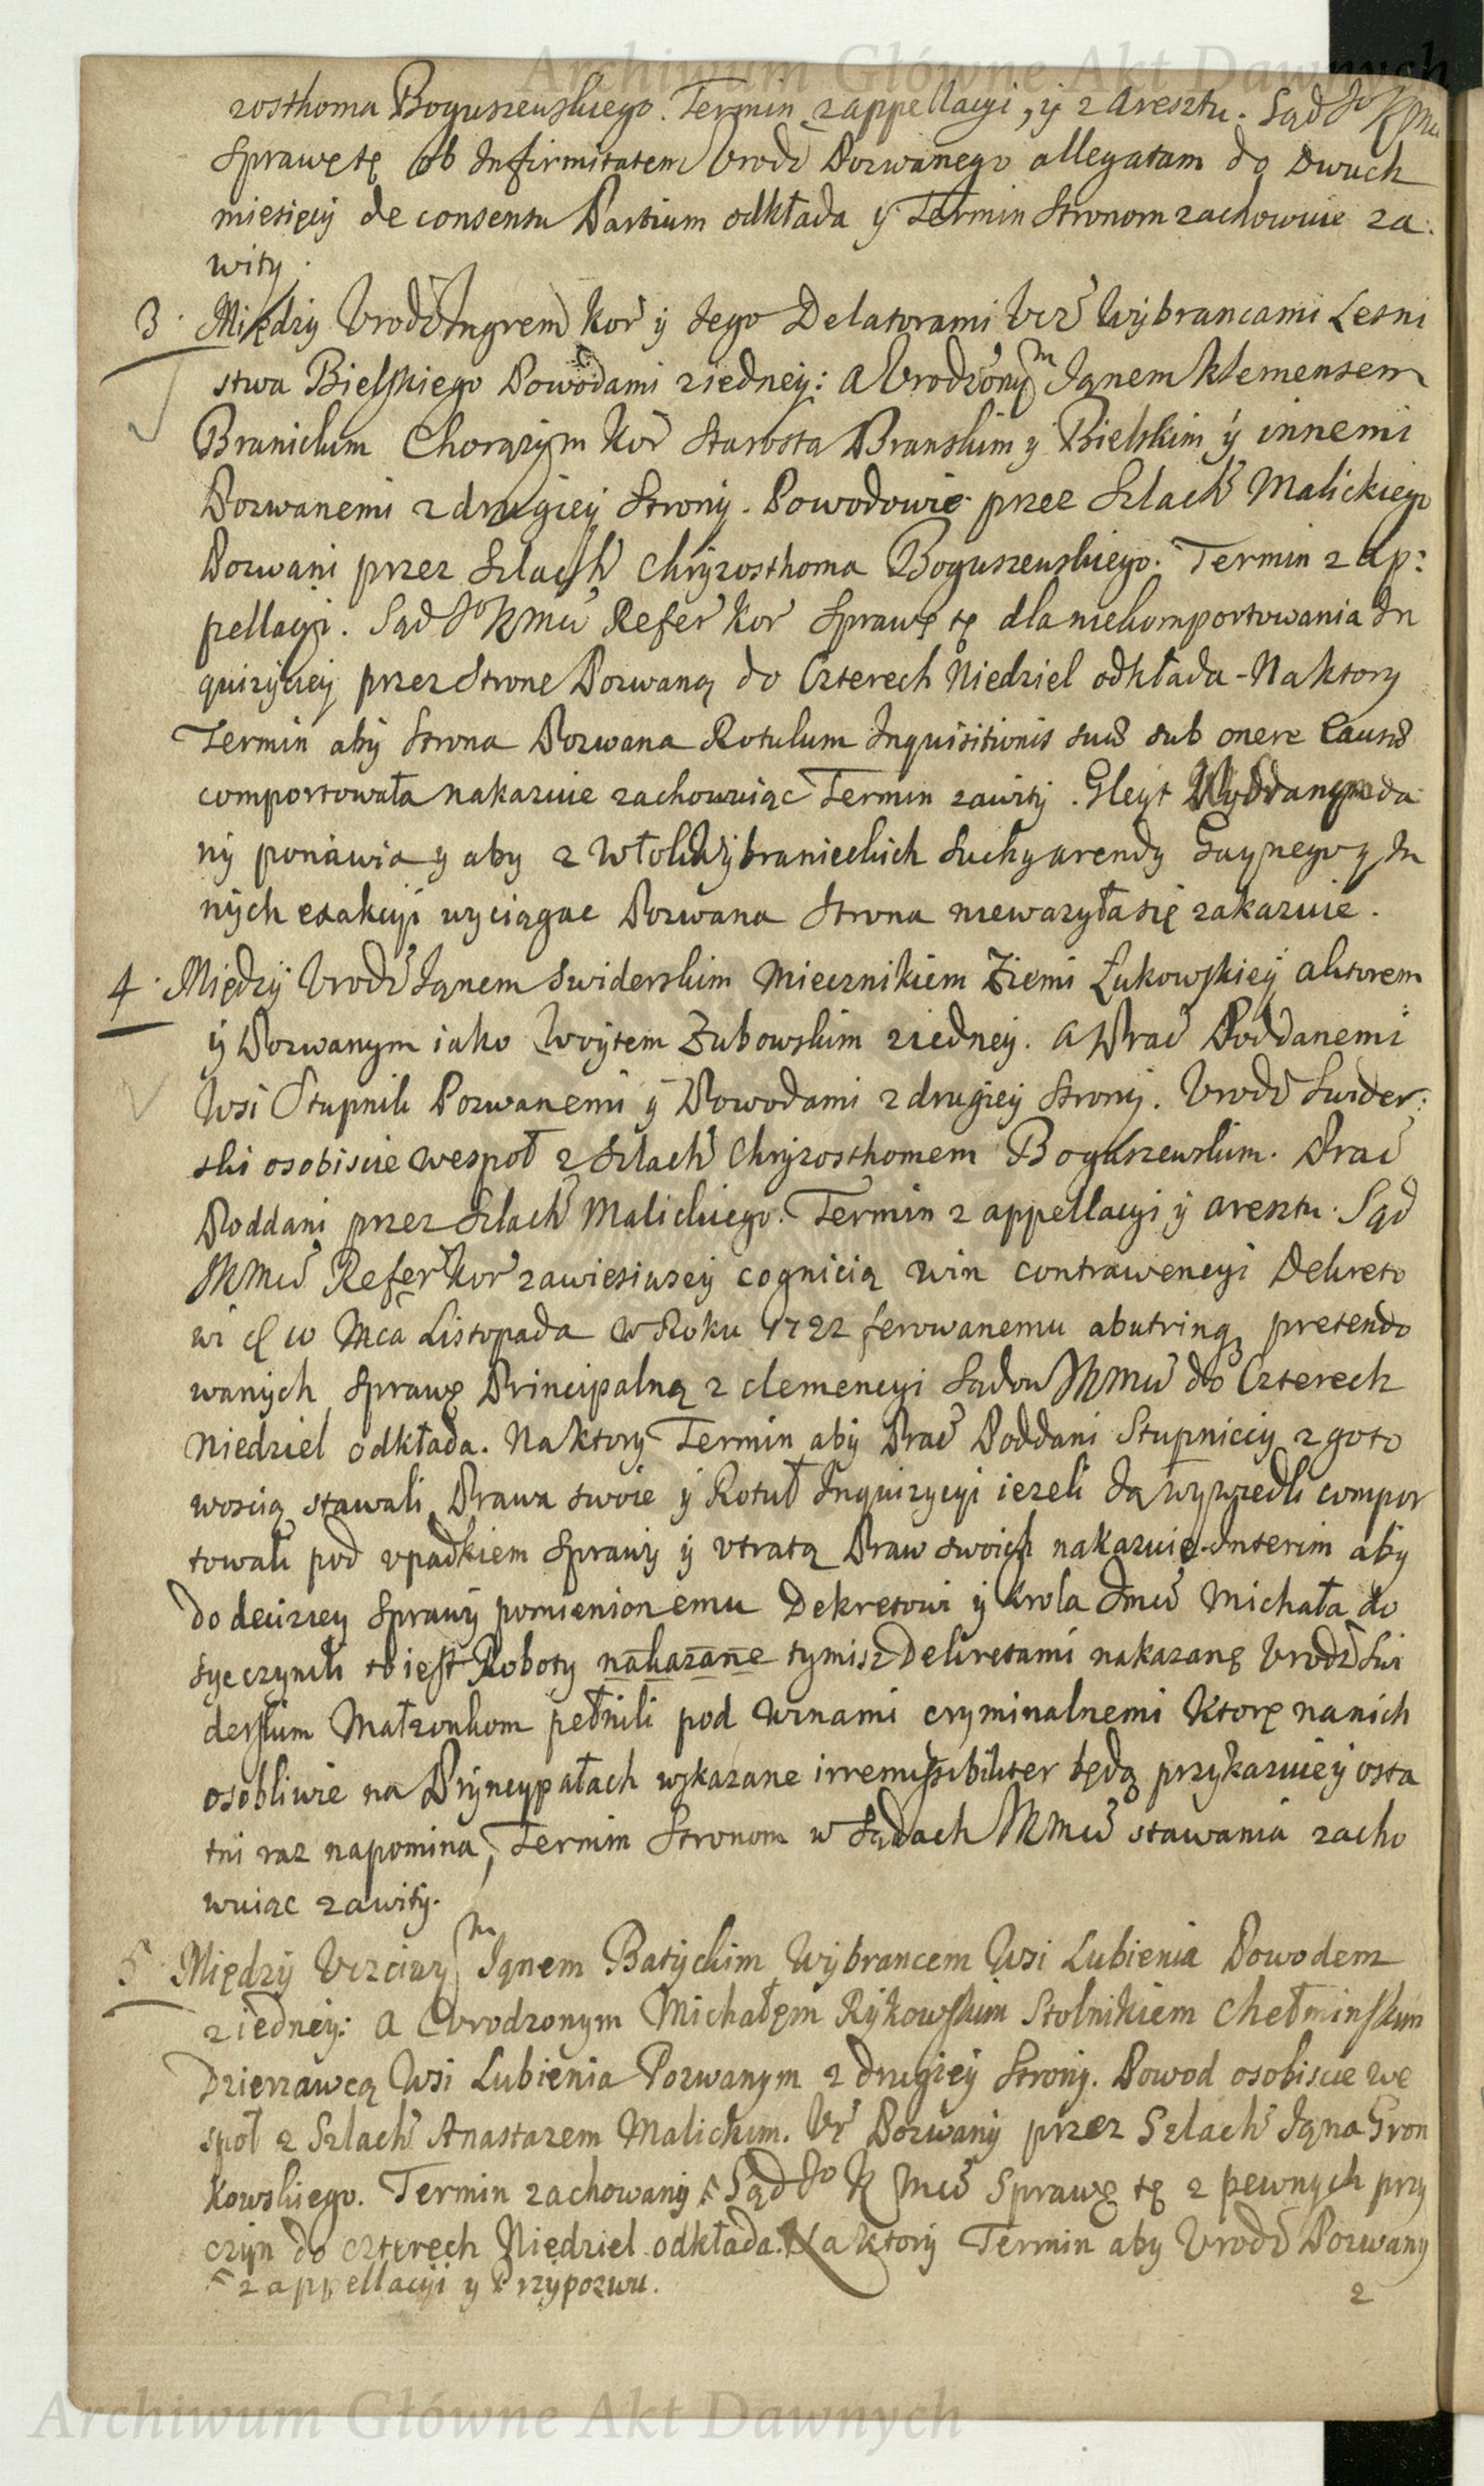 Archiwum Główne Akt Dawnych
zosthoma Boguszewskiego. Termin z appellacyi, ÿ z Aresztu. Sąd Jo K Mci
Sprawę tę ob Infirmitatem Vrodz Pozwanego allegatam do Dwuch
miesięcÿ de consensu Partium odkłada ÿ Termin Stronom zachowuie za:
witÿ.
3. Międzÿ Vrodz Ingrem Kor ÿ Jego Delatorami Vcz Wÿbrancami Lesni
stwa Bielskiego Powodami ziedneÿ: A Vrodzonym Janem Klemensem
Branickim Chorążÿm Kor Starostą Branskim y Bielskim ÿ innemi
Pozwanemi z drugieÿ Stronÿ. Powodowie przez Szlach Malickiego
Pozwani przez Szlach Chrÿzosthoma Boguszewskiego. Termin z Ap:
pellacÿi. Sąd Jo K Mci Refer Kor Sprawę tę dla niekomportowania In
quizÿcieÿ przez Strone Pozwaną do Czterech Niedziel odkłada - Na ktorÿ
Termin abÿ Strona Pozwana Rotulum Inquisitionis suæ sub onere causæ
comportowała nakazuie zachowuiąc Termin zawitÿ. Gleÿt da
nÿ ponawia y aby z Włok Wÿbranieckich Suchy arendy Gaynego y In
nÿch exakcÿi wyciągac Pozwana Strona niewazyła się zakazuie.
4. Międzÿ Vrodz Janem Swiderskim Miecznikiem Ziemi Łukowskieÿ Aktorem
ÿ Pozwanym iako Woÿtem Zubowskim ziedneÿ. A Prac Poddanemi
Wsi Stupnik Pozwanemi ÿ Powodami z drugieÿ Stronÿ. Vrodz Swider:
ski osobiscie wespoł z Szlach Chrÿzosthomem Boguszewskim. Prac
Poddani przez Szlach Malickiego. Termin z appellacyi ÿ Aresztu. Sąd
JKMci Refer Kor zawiesiwszÿ cognicią win contrawencyi Dekreto
wi w Mca Listopada w Roku 1722 ferowanemu abutrinq pretendo
wanych Sprawę Principalną z clemencyi Sądow JKMci do Czterech
Niedziel odkłada. Na ktorÿ Termin abÿ Prac Poddani Stupniccÿ z goto
woscią stawali Prawa swoie ÿ Rotuł Inquizycyi iezeli Ją wywiedli compor
towali pod vpadkiem Sprawÿ ÿ vtratą Praw swoich nakazuie. Interim abÿ
do decizieÿ Sprawÿ pomienionemu Dekretowi ÿ Krola Jmci Michała do
syc czynili to iest Robotÿ nakazane tymisz Dekretami nakazanę Vrodz Swi
derskim Małzonkom pełnili pod winami cryminalnemi Ktorę na nich
osobliwie na Prÿncypałach wskazane irremissibiliter będą przykazuie ÿ osta
tni raz napomina, Termin Stronom w Sądach JKMci stawania zacho
wuiąc zawitÿ.
5. Międzÿ Vczciwym Janem Batÿckim Wÿbrancem Wsi Lubienia Powodem
ziedneÿ: A Vrodzonym Michałem Rÿkowskim Stolnikiem Chełminskim
Dzierzawcą Wsi Lubienia Pozwanym z drugieÿ Stronÿ. Powod osobiscie we
społ z Szlach Anastazem Malickim. Vr Pozwanÿ przez Szlach Jana Gron
kowskiego. Termin zachowanÿ Sąd Jo K Mci Sprawę tę z pewnych przy
czÿn do czterech Niedziel odkłada. Na ktorÿ Termin aby Vrodz Pozwany
z appellacÿi y Przypozwu.
2
Archiwum Główne Akt Dawnych